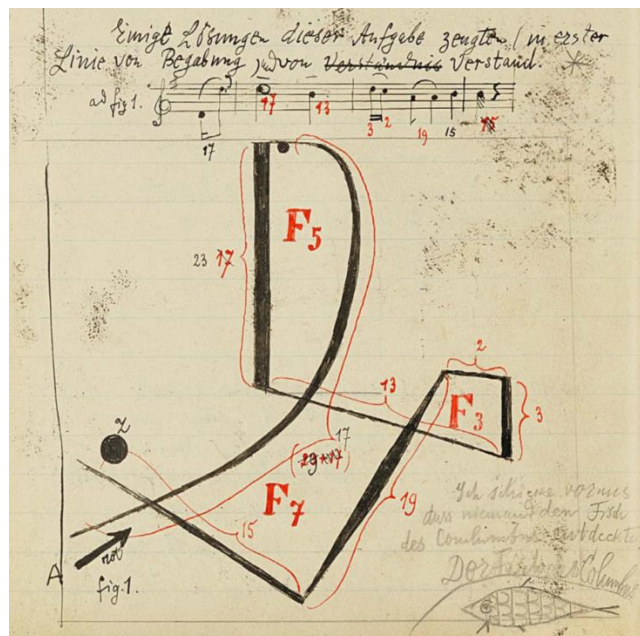 Einige Lösungen dieser Aufgabe zeugten (in erster
Linie von Begabung) und von Verständnis Verstand.
ad fig 1.
17 17 13 3 2 19 15 15
F5
23 17
2
13
F3
3
17
(29+17)
2
F7
19
15
A
rot
fig. 1.
Ich schicke voraus
dass niemand den Fisch
des Columbus entdeckte
Der Fisch des Columbus